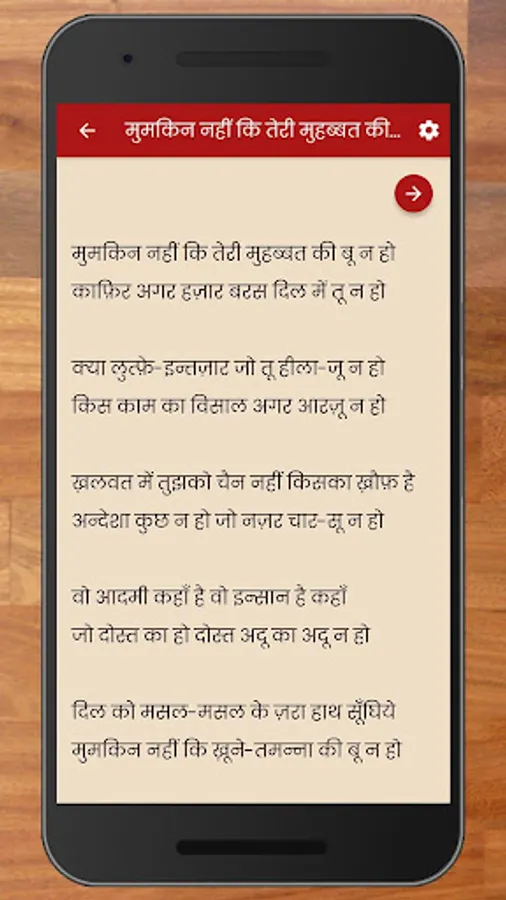 मुमकिन नहीं कि तेरी मुहब्बत की...
मुमकिन नहीं कि तेरी मुहब्बत की बू न हो
काफ़िर अगर हज़ार बरस दिल में तू न हो
क्या लुत्फ़े-इन्तज़ार जो तू हीला-जू न हो
किस काम का विसाल अगर आरज़ू न हो
ख़लवत में तुझको चैन नहीं किसका ख़ौफ़ है
अन्देशा कुछ न हो जो नज़र चार-सू न हो
वो आदमी कहाँ है वो इन्सान है कहाँ
जो दोस्त का हो दोस्त अदू का अदू न हो
दिल को मसल-मसल के ज़रा हाथ सूँघिये
मुमकिन नहीं कि ख़ूने-तमन्ना की बू न हो